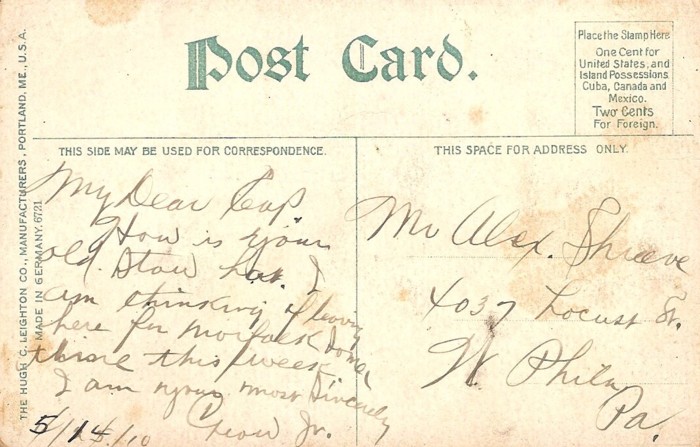 Post Card.
Place the Stamp Here
One Cent for
United States, and
Island Possessions
Cuba, Canada and
Mexico.
Two Cents
For Foreign.
THE HUGH C. LEIGHTON CO., MANUFACTURERS, PORTLAND, ME., U.S.A.
MADE IN GERMANY. 6721
THIS SIDE MAY BE USED FOR CORRESPONDENCE.
My Dear Cap
How is your
old Straw hat. I
am thinking of leaving
here for Norfolk some
time this week
I am your most Sincerely
Jr.
5/14/10
THIS SPACE FOR ADDRESS ONLY.
Mr Alex. Shreeve
4037 Locust St.
W. Phila
Pa.